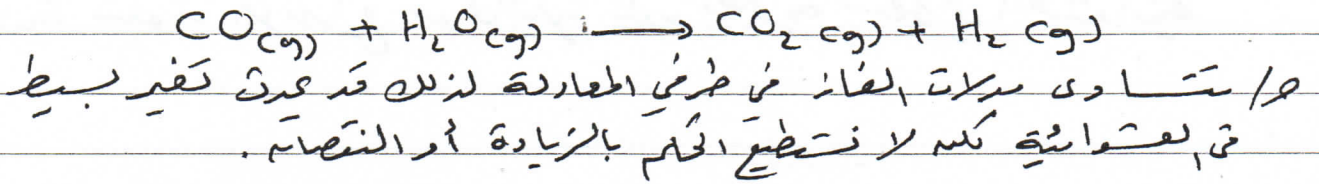 CO(g) + H₂O(g) ⟶ CO₂(g) + H₂(g)
ج/ تتساوى مولات الغاز في طرفي المعادلة لذلك قد يحدث تغير بسيط
في العشوائية لكن لا نستطيع الحكم بالزيادة أو النقصان.